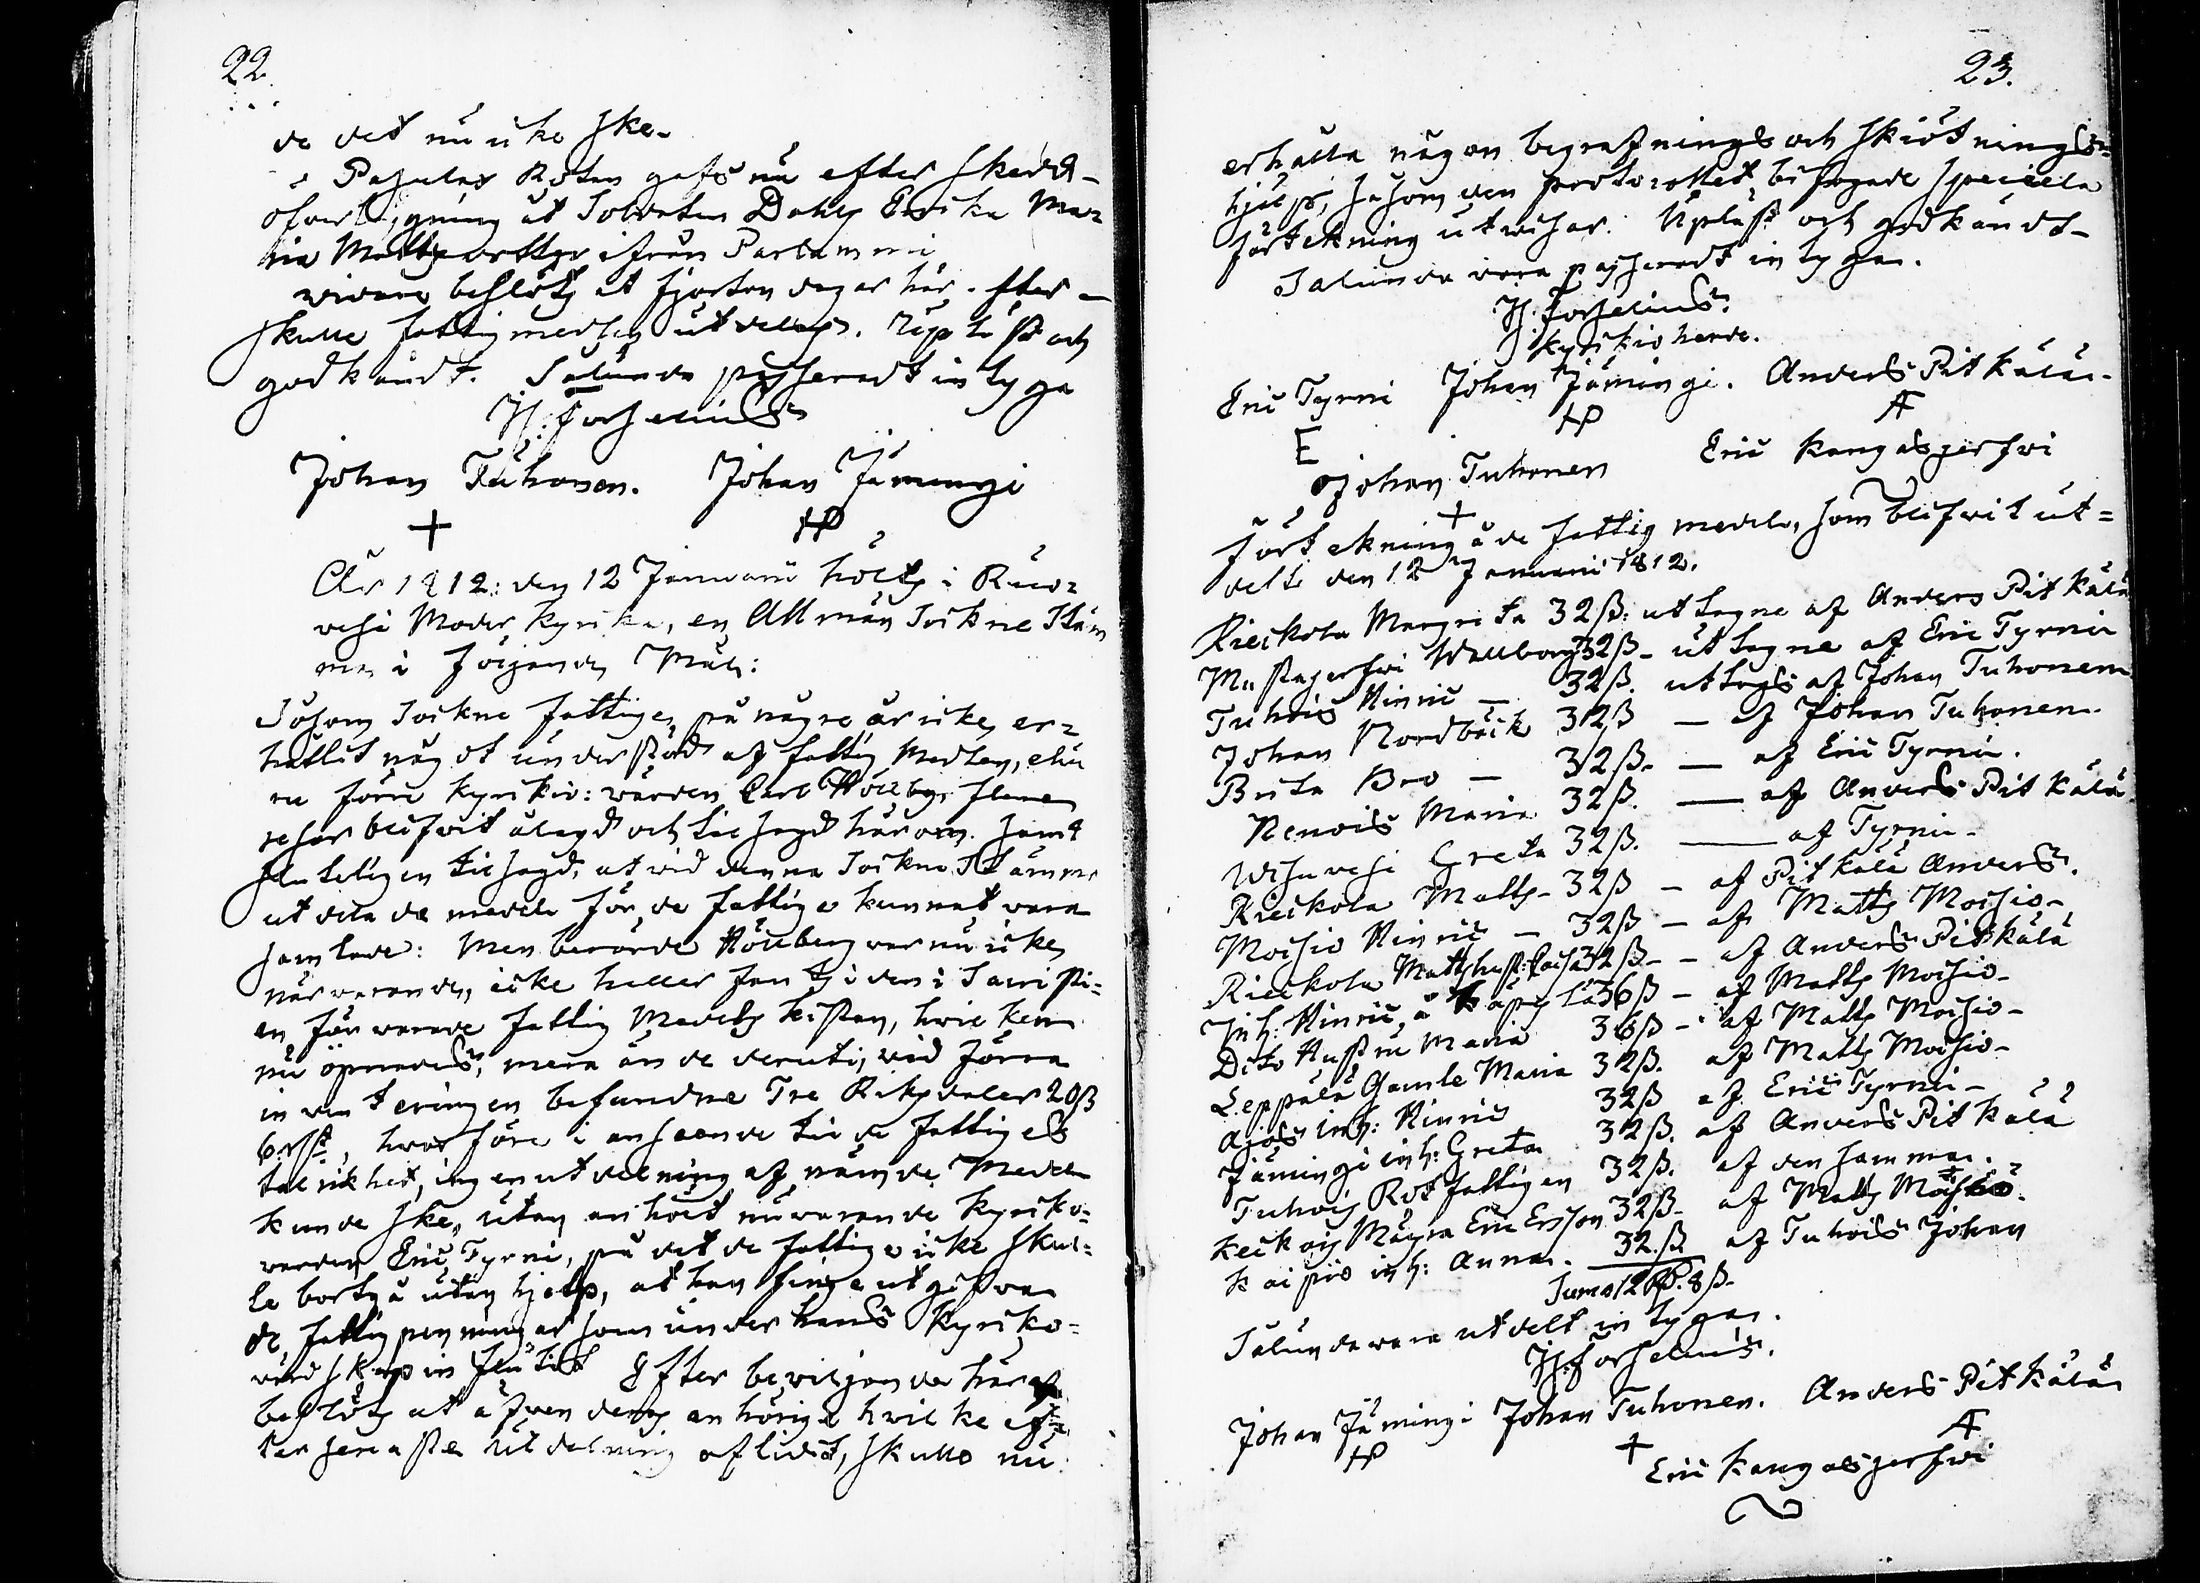 22.
de det nu icke ske.
Pajulax Roten gafs nu efter skedd
öfverläggning åt Soldaten Dahls Enika Ma=
ria Matts dotter ifrån Parlammi
vidare beslöts at fjorton dagar här efter
skulle fattigmedlen utdelas. Uplöst och
godkändt. Sålunda passeradt intyga
H: Forselius
Johan Tuhonen. Johan Jämingi
+ HP
År 1812: den 12 Januarii hölts i Ruo=
vesi Moder Kyrka, en Allmän Sockne Stäm
ma i följande Mål:
Såsom Sockne fattige på någre år icke er=
hållit något understöd af fattig Medlen, ehu
ru förre Kyrkio: värden Carl Höllberg flere
resor blifvit ålagd och tilsagd härom. Samt
sluteligen tilsagd, at vid denna Sockne Stämma
utdela de medel för de fattige kunnat vara
samlade: Men berörde Höllberg var nu icke
närvarande, icke heller fans i den i Sacristi=
en förvarade fattig Medels kistan, hvilken
nu öpnades, mera än de deruti, vid förra
inventeringen befundne Tre Riksdaler 20ß
6 rst, hvarföre i anseende til de fattiges
talrikhet, ingen utdelning af nämde Medel
kunde ske, utan anhölt nuvarande Kyrko=
värden Eric Tyrni, på det de fattige icke skul=
le bortgå utan hjelp, at han finge utgifva
de fattigpenningar som under hans Kyrko=
värdskap influtit Efter beviljande häraf
beslöts at äfven dens anhörige hvilke ef=
ter senaste utdelning aflidit, skulle nu
23.
erhålla någon begrafnings och skiötnings=
hjelp, såsom den protocollet bifogade speciela
förtekning utvisar. Uplöst och godkändt
Sålunda vara passeradt intygar.
H: Forselius
Kyrkioherde.
Eric Tyrni Johan Jämingi. Anders Pitkälä
E HP AF
Johan Tuhonen Eric Kangasjerfvi
+
Förtekning å de fattig medel, som blifvit ut=
delte den 12 Januarii 1812.
Rieckola Margreta 32ß. uttagne af Anders Pitkälä
Mustajerfvi Wallborg 32ß uttagne af Eric Tyrni
Tuhois Hinric — 32ß. uttogs af Johan Tuhonen
Johan Nordbäck 32ß — af Johan Tuhonen
Brita Bro — 32ß. — af Eric Tyrni.
Renvois Maria 32ß. — af Anders Pitkälä
Wisuvesi Greta 32ß. — af Tyrni
Rieckola Matts 32ß — af Pitkälä Anders.
Moisio Hinric — 32ß — af Matts Moisio
Rieckola Matts hust: Caisa 32ß — af Anders Pitkälä
Inh: Hinric å 36ß — af Matts Moisio
Dito Hustru Maria 36ß — af Matts Moisio
Leppälä Gamle Maria 32ß. af Matts Moisio
Ajos inh: Hinric 32ß af Eric Tyrni
Jämingi inh: Greta 32ß. af Anders Pitkälä
Tuhois Rotfattigen 32ß. af den samma.
Keckois Måga Eric Ersson 32ß af Matts Moisio.
Kaipio inh: Anna. 32.ß af Tuhois Johan
Suma 12 Rd. 8ß.
Sålunda vara utdelt intygar.
H: Forselius.
Johan Jämingi Johan Tuhonen. Anders Pitkälä
HP + AF
Eric Kangasjerfvi